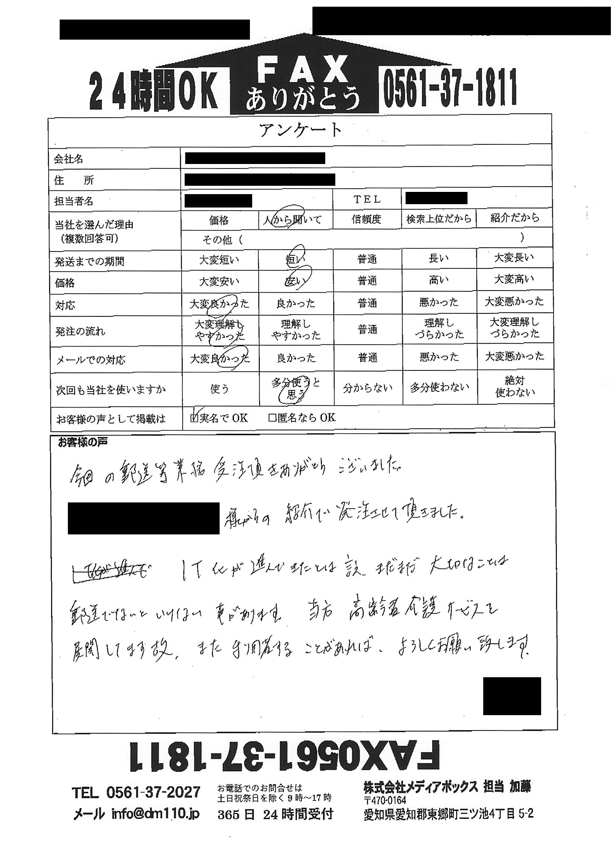 24時間OK
FAX
ありがとう
0561-37-1811
アンケート
会社名
住　所
担当者名 TEL
当社を選んだ理由
(複数回答可)
価格 人から聞いて 信頼度 検索上位だから 紹介だから
その他 ( )
発送までの期間 大変短い 短い 普通 長い 大変長い
価格 大変安い 安い 普通 高い 大変高い
対応 大変良かった 良かった 普通 悪かった 大変悪かった
発注の流れ 大変理解しやすかった 理解しやすかった 普通 理解しづらかった 大変理解しづらかった
メールでの対応 大変良かった 良かった 普通 悪かった 大変悪かった
次回も当社を使いますか 使う 多分使うと思う 分からない 多分使わない 絶対使わない
お客様の声として掲載は ☑実名でOK □匿名ならOK
お客様の声
今回の郵送等業務受注頂きありがとうございました。
様からの紹介で発注させて頂きました。
IT化が進んできたとは言え まだまだ大切なことは
郵送でないといけない事があります 当方 高齢者介護サービスを
展開してます故、また利用することがあれば、よろしくお願い致します
FAX0561-37-1811
TEL 0561-37-2027
メール info@dm110.jp
お電話でのお問合せは
土日祝祭日を除く9時～17時
365日 24時間受付
株式会社メディアボックス 担当 加藤
〒470-0164
愛知県愛知郡東郷町三ツ池4丁目5-2